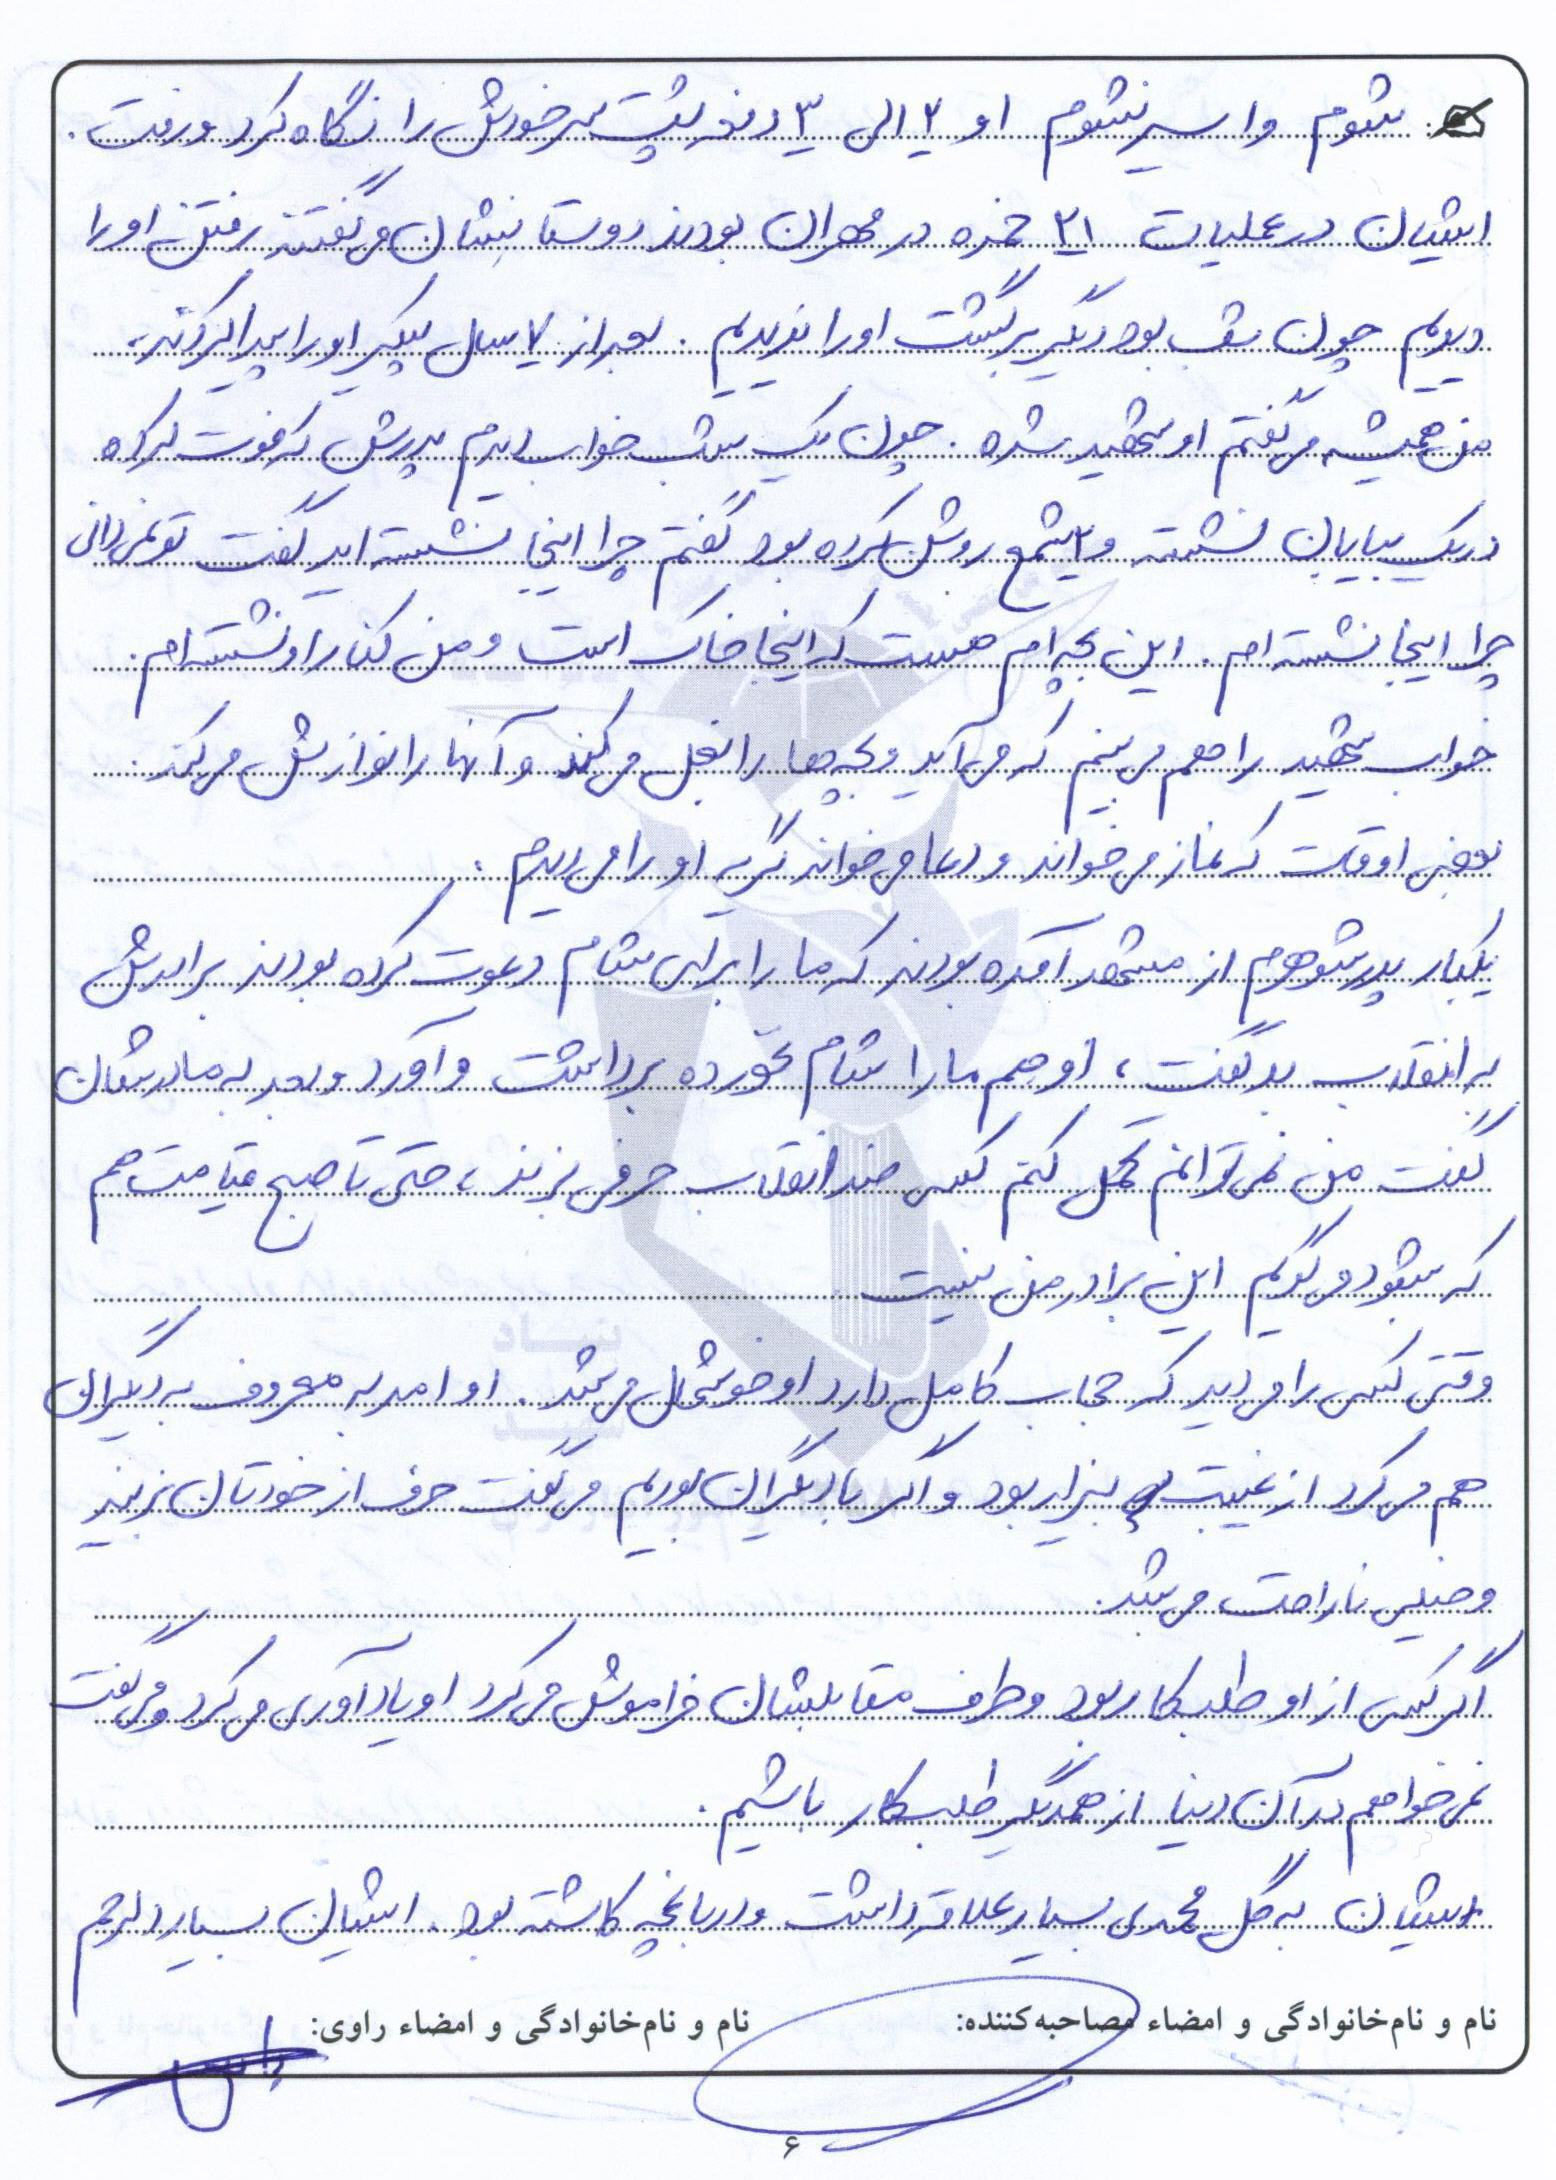 شوم و اسیر نشوم او ۲ الی ۳ دفعه پشت سر خودش را نگاه کرد و رفت.
ایشان در عملیات ۲۱ حمزه در مهران بودند دوستانشان می گفتند رفتن او را
دیدیم چون شب بود دیگر برگشت او را ندیدیم. بعد از ۷ سال پیکر او را پیدا کردند.
من همیشه می گفتم او شهید شده. چون یک شب خواب دیدم پدرش که فوت کرده
در یک بیابان نشسته و ۲ شمع روشن کرده بود گفتم چرا اینجا نشسته اید گفت تو نمی دانی
چرا اینجا نشسته ام. این بچه ام هست که اینجا خاک است و من کنار او نشسته ام.
خواب شهید را هم می بینم که می آید و بچه ها را بغل می کند و آنها را نوازش می کند.
بعضی اوقات که نماز می خواند و دعا می خواند گریه او را می دیدم.
یکبار پدر شوهرم از مشهد آمده بودند که ما را برای شام دعوت کرده بودند برادرش
به انقلاب بد گفت، او هم ما را شام نخورده برداشت و آورد و بعد به مادرشان
گفت من نمی توانم تحمل کنم کسی ضد انقلاب حرفی بزند، حتی تا صبح قیامت هم
که بشود می گویم این برادر من نیست
وقتی کسی را می دید که حجاب کامل دارد او خوشحال می شد. او امر به معروف به دیگران
هم می کرد از غیبت بیزار بود و اگر با دیگران بودیم می گفت حرف از خودتان بزنید
و خیلی ناراحت می شد.
اگر کسی از او طلبکار بود و طرف مقابلشان فراموش می کرد او یادآوری می کرد و می گفت
نمی خواهم در آن دنیا از همدیگر طلبکار باشیم.
ایشان به گل محمدی بسیار علاقه داشت و در باغچه کاشته بود. ایشان بسیار دلرحم
نام و نام‌خانوادگی و امضاء مصاحبه‌کننده: نام و نام‌خانوادگی و امضاء راوی:
۶